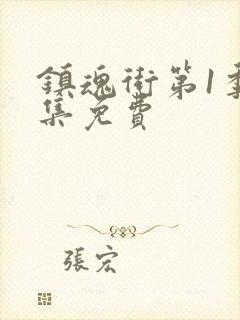 鎮魂街第1季
集免費
張宏